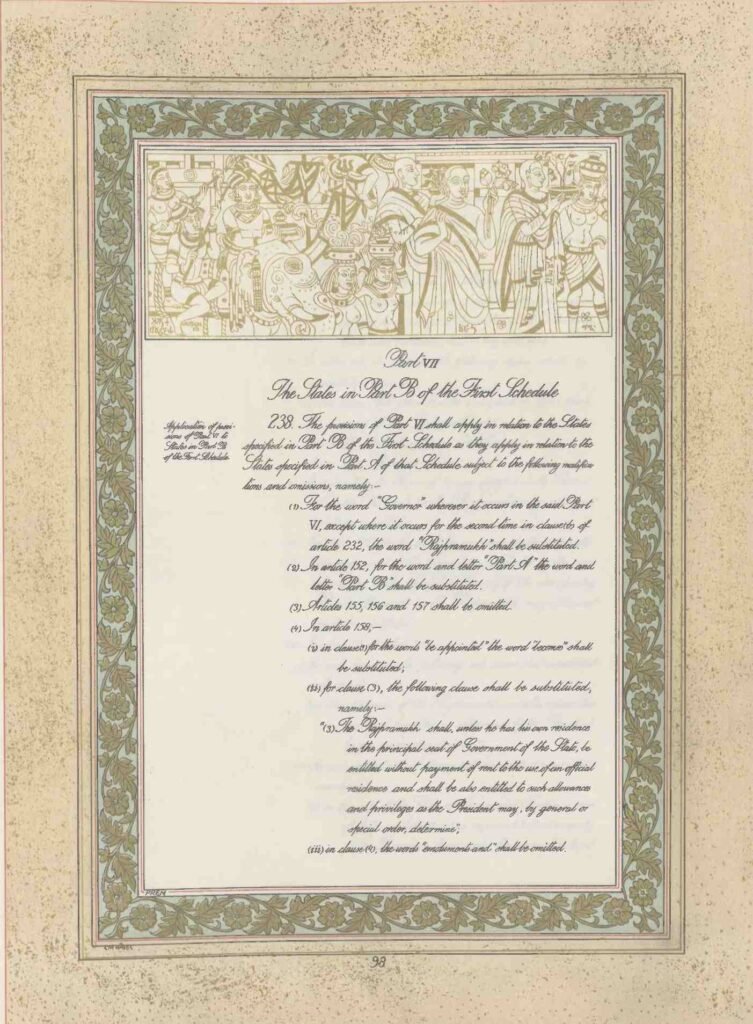 Part VII
The States in Part B of the First Schedule
Application of provi-
sions of Part VI to
States in Part B
of the First Schedule.
238. The provisions of Part VI shall apply in relation to the States
specified in Part B of the First Schedule as they apply in relation to the
States specified in Part A of that Schedule subject to the following modifica
tions and omissions, namely:—
(1) For the word "Governor" wherever it occurs in the said Part
VI, except where it occurs for the second time in clause(b) of
article 232, the word "Rajpramukh" shall be substituted.
(2) In article 152, for the word and letter "Part A" the word and
letter "Part B" shall be substituted.
(3) Articles 155, 156 and 157 shall be omitted.
(4) In article 158,—
(i) in clause(1) for the words "be appointed" the word "become" shall
be substituted;
(ii) for clause (3), the following clause shall be substituted,
namely:—
"(3) The Rajpramukh shall, unless he has his own residence
in the principal seat of Government of the State, be
entitled without payment of rent to the use of an official
residence and shall be also entitled to such allowances
and privileges as the President may, by general or
special order, determine";
(iii) in clause (4), the words "emoluments and" shall be omitted.
PREM
98